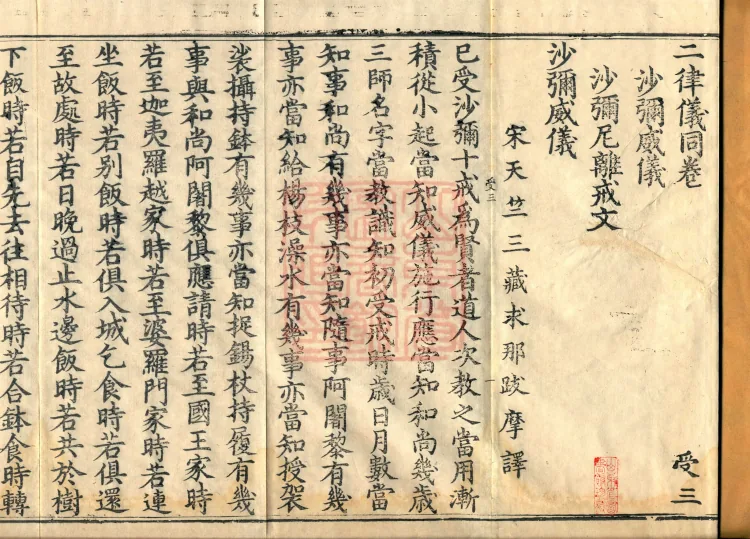 二律儀同卷 受三
沙彌威儀
沙彌尼離戒文
沙彌威儀
宋天竺三藏求那跋摩譯
受三
已受沙彌十戒為賢者道人次教之當用漸
積從小起當知威儀施行應當知和尚幾歲
三師名字當教識知初受戒時歲日月數當
知事和尚有幾事亦當知隨事阿闍黎有幾
事亦當知給楊枝澡水有幾事亦當知授袈
裟攝持鉢有幾事亦當知捉錫杖持履有幾
事與和尚阿闍黎俱應請時若至國王家時
若至迦夷羅越家時若至婆羅門家時若連
坐飯時若別飯時若俱入城乞食時若俱還
至故處時若日晚過止水邊飯時若共於樹
下飯時若自先去住相待時若合鉢食時轉